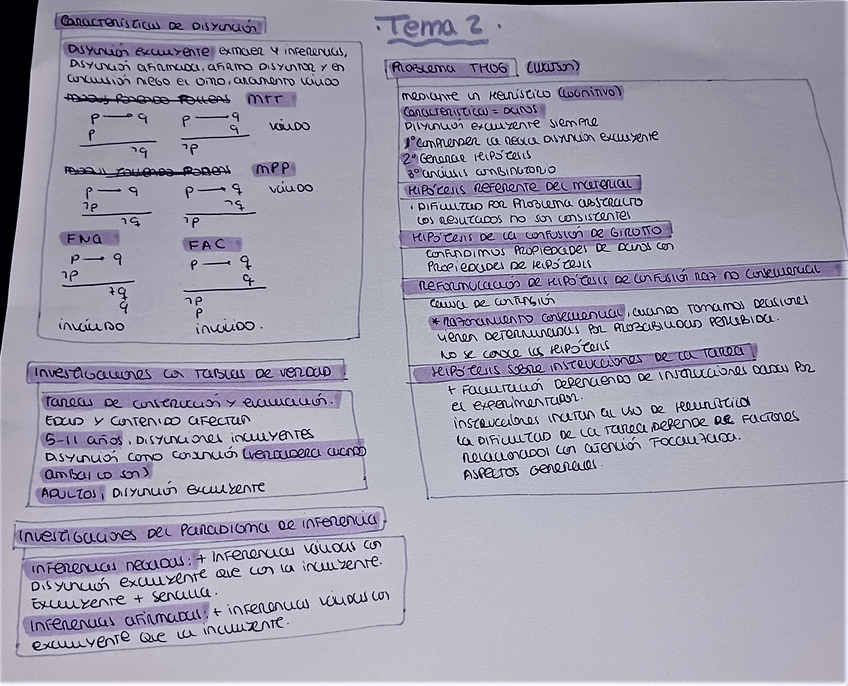 · Tema 2 ·
Características de Disyunción
Disyunción excluyente extraer 4 inferencias,
Disyunción afirmada, afirmo disyuntor y en
conclusión niego el otro, argumento válido
modus ponendo tollens MTT
p → q p → q
p q válido
¬q ¬p
tollendo ponens MPP
p → q p → q válido
¬p ¬q
¬q ¬p
FNA FAC
p → q p → q
¬p q
+q ¬p
q p
inválido inválido.
Investigaciones con Tablas de verdad
Tareas de construcción y evaluación.
Edad y contenido afectan
5-11 años, disyunciones incluyentes
Disyunción como conjunción (verdadera cuando
ambas lo son)
Adultos, Disyunción excluyente
Investigaciones del Paradigma de inferencia
Inferencias negadas: + inferencias válidas con
Disyunción excluyente que con la incluyente.
Excluyente + sencilla.
Inferencias afirmadas: + inferencias válidas con
excluyente que la incluyente.
Problema THOG (Wason)
mediante un heurístico (cognitivo)
Características = Datos
Disyunción excluyente siempre
1º comprender la regla disyunción excluyente
2º Generar Hipótesis
3º análisis combinatorio
Hipótesis referente del material
· Dificultad por problema abstracto
Los resultados no son consistentes
Hipótesis de la confusión de Girotto
Confundimos propiedades de Datos con
Propiedades de Hipótesis
Reformulación de Hipótesis de confusión Raz no consecuencial
Causa de confusión
* Razonamiento consecuencial, cuando tomamos decisiones
vienen determinadas por probabilidad percibida.
No se conoce las Hipótesis
Hipótesis sobre instrucciones de la Tarea
+ Facilitación dependiendo de instrucciones dadas por
el experimentador.
instrucciones incitan al uso de Heurístico
La dificultad de la Tarea depende de factores
relacionados con atención focalizada.
Aspectos generales.